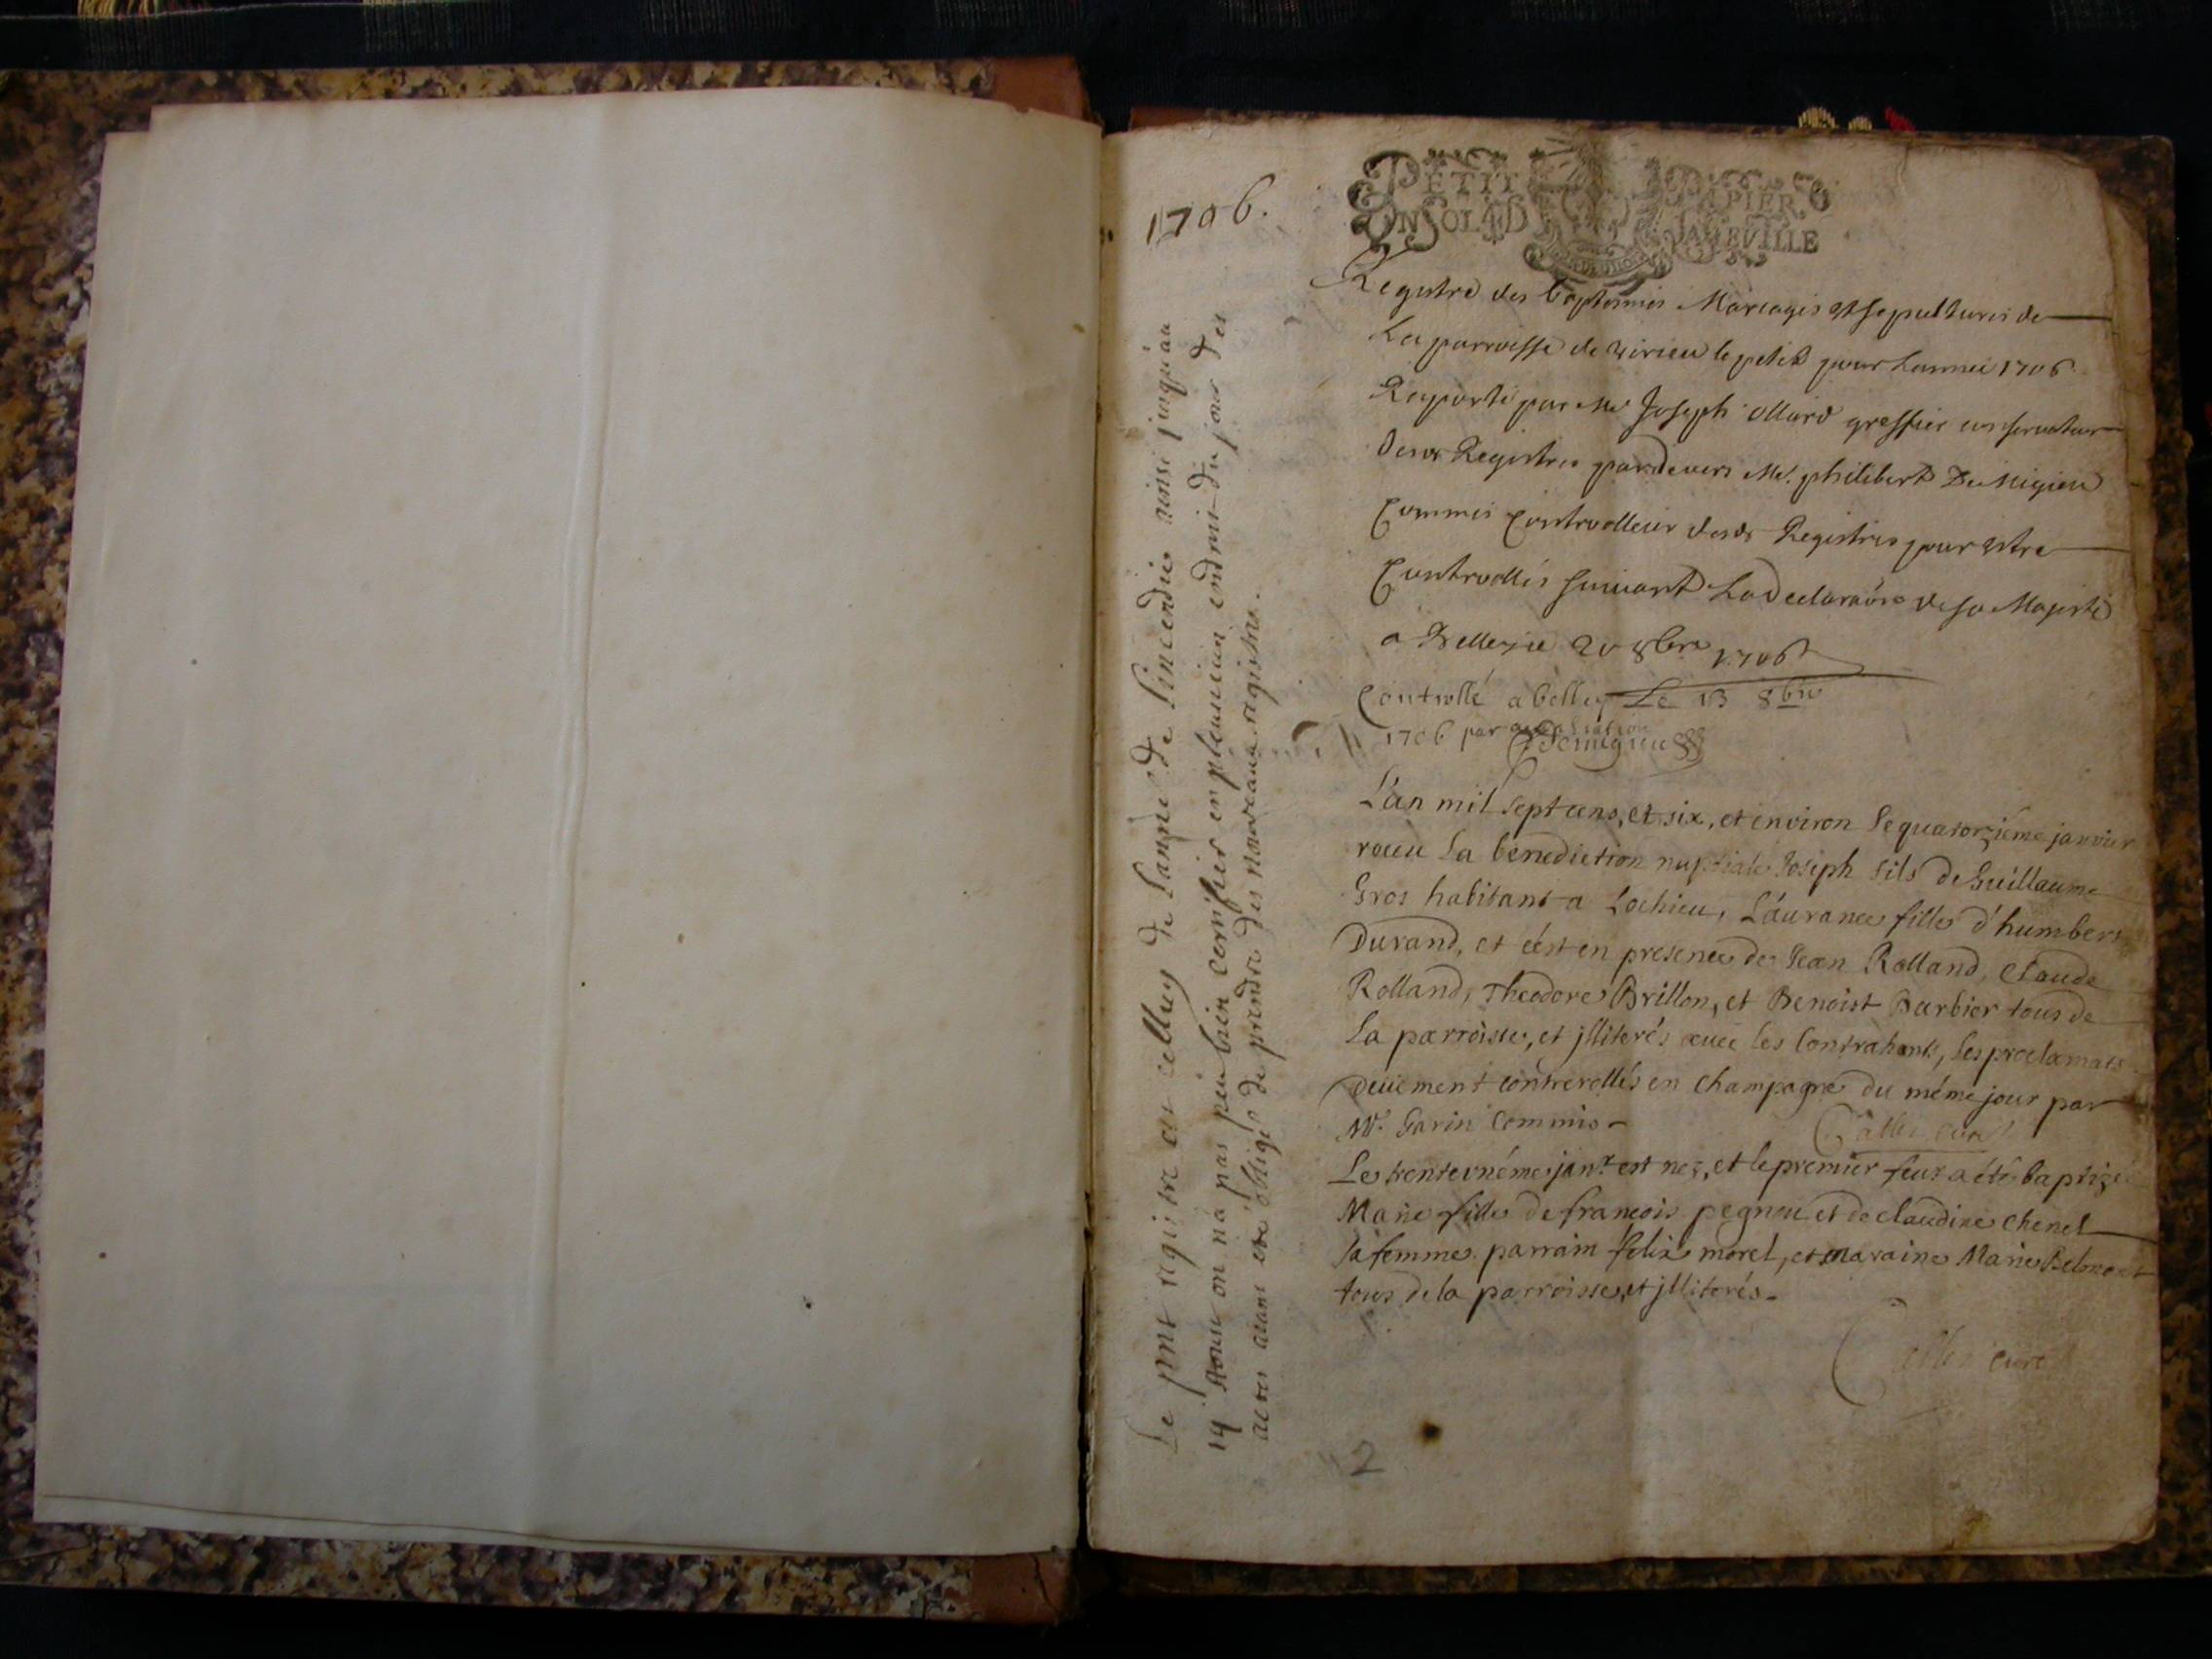 1706.
PETIT PAPIER
UN SOL 4 D LA FEUILLE
Registre des baptesmes Mariages et sepultures de
La parroisse de virieu le petit pour Lannee 1706
Raporté par Me Joseph ollard greffier conservateur
desd Registres pardevers Me. philibert De Migieu
Commis Controlleur desds Registres pour estre
Controllés suivant La Declaraõn de sa Majesté
a Belley ce 20 8bre 1706
Controllé a belley Le 13 8bre
1706 par
Demigieu
L'an mil sept cens, et six, et environ le quatorziéme janvier
receu La benediction nuptiale Joseph fils de Guillaume
Gros habitant a Lochieu, Laurance fille d'humbert
Durand, et c'est en presence de Jean Rolland, Claude
Rolland, Theodore Brillon, et Benoist Barbier tous de
La parroisse, et jlliterés avec les Contrahants, les proclamats
deuëment controrollés en Champagne du méme jour par
Mr. Garin Commis -
curé
Le trenteunéme janr. est nez, et le premier feur a été baptizé
Marie fille de francois pegnou et de claudine Chenel
sa femme. parrain felix morel, et maraine Marie Belmont
tous de la parroisse, et jlliterés.
curé
2
Le pnt registre est celluy de l'année de l'incendie ainsi jusqu'au
19 on n'a pas peu bien certifier en plusieurs endroits du jour des
actes aiant eté obligé de prendre des nouveaux registres.